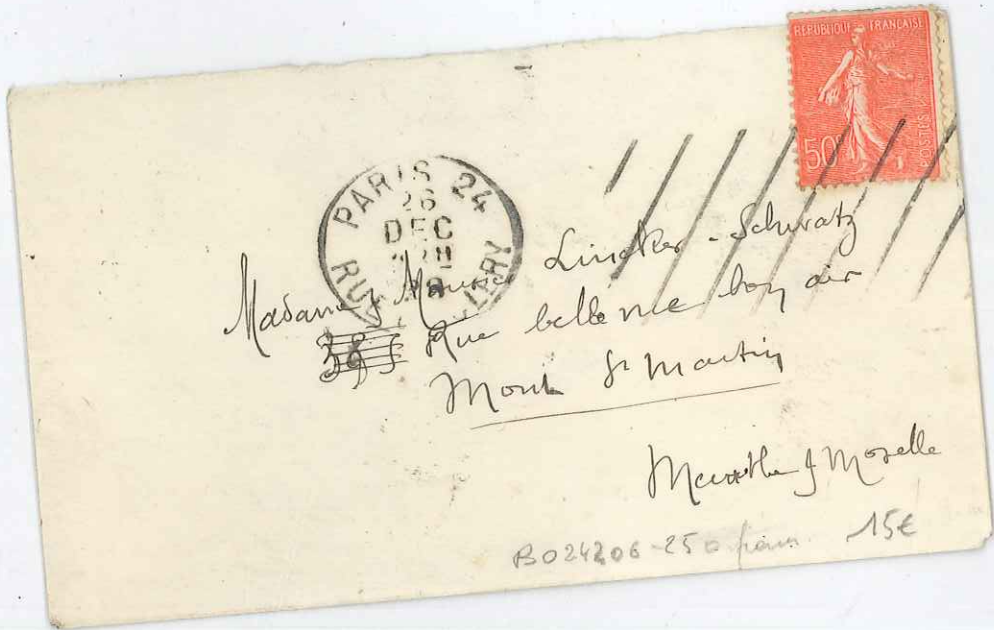 REPUBLIQUE FRANÇAISE
50c
POSTES
PARIS 24
26
DEC
RUE
Madame Maurice Lincker-Schwatz
Rue bellevue bon air
Mont St Martin
Meurthe & Moselle
B024206-25 15€